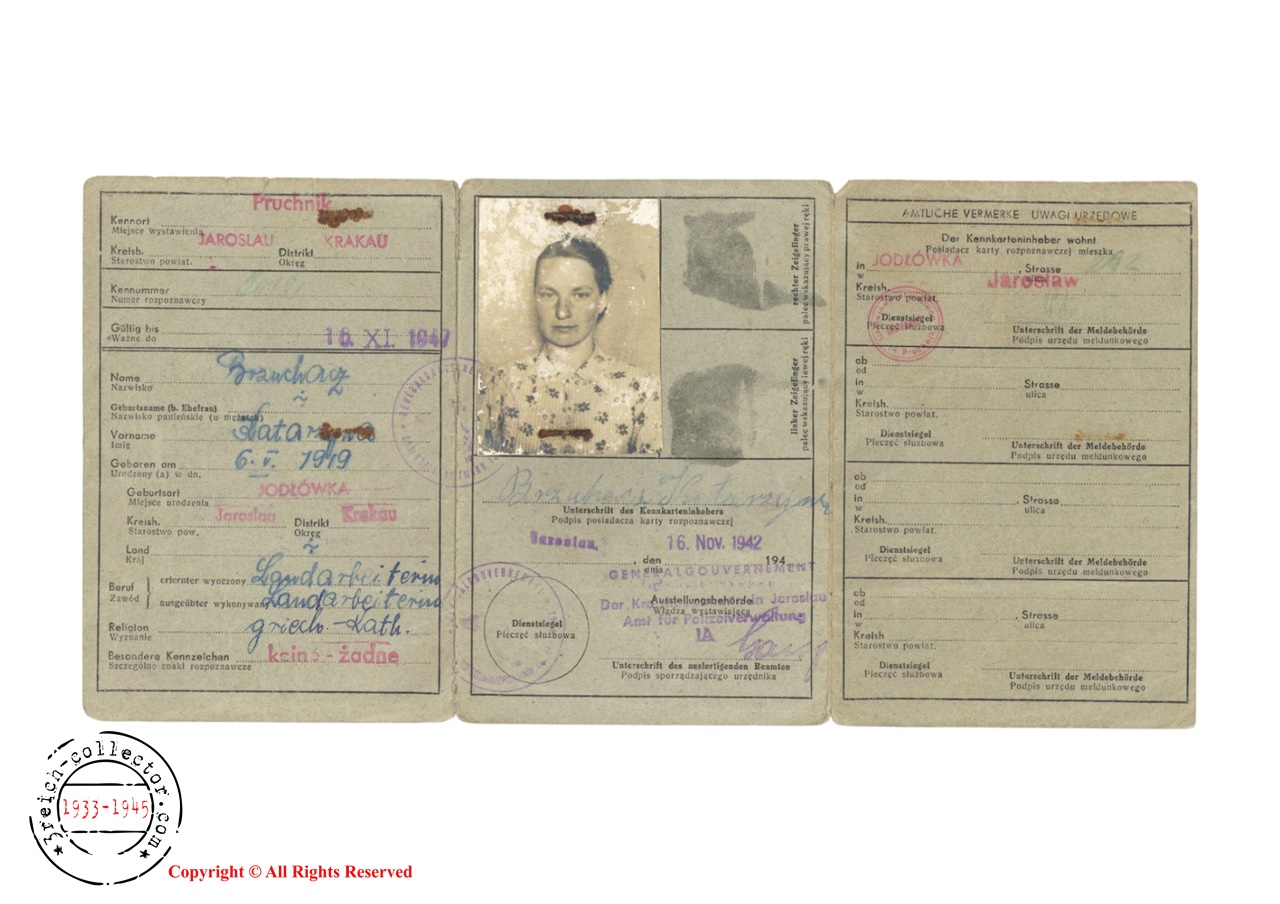 Pruchnik
Kennort
Miejsce wystawienia
JAROSLAU KRAKAU
Kreish. Distrikt
Starostwo powiat. Okręg
Kennummer
Numer rozpoznawczy
Gültig bis
Ważne do
16. XI. 1947
Name
Nazwisko
Geburtsname (b. Ehefrau)
Nazwisko panieńskie (u mężatek)
Vorname
Imię
Geboren am 6. V. 1919
Urodzony (a) w dn.
Geburtsort JODŁÓWKA
Miejsce urodzenia
Kreish. Jaroslau Distrikt Krakau
Starostwo pow. Okręg
Land
Kraj
Beruf
Zawód
erlernter wyuczony Landarbeiterin
ausgeübter wykonywany Landarbeiterin
Religion griech.-kath.
Wyznanie
Besondere Kennzeichen keine - żadne
Szczególne znaki rozpoznawcze
rechter Zeigefinger
palec wskazujący prawej ręki
linker Zeigefinger
palec wskazujący lewej ręki
Unterschrift des Kennkarteninhabers
Podpis posiadacza karty rozpoznawczej
Jaroslau, , den 16. Nov. 1942 194
dnia
GENERALGOUVERNEMENT
Ausstellungsbehörde
Władza wystawiająca
Der in Jaroslau
Amt für Polizeiverwaltung
IA
Dienstsiegel
Pieczęć służbowa
Unterschrift des ausfertigenden Beamten
Podpis sporządzającego urzędnika
AMTLICHE VERMERKE UWAGI URZĘDOWE
Der Kennkarteninhaber wohnt
Posiadacz karty rozpoznawczej mieszka
in JODŁÓWKA , Strasse
w ulica
Kreish. Jarosław
Starostwo powiat.
Dienstsiegel Unterschrift der Meldebehörde
Pieczęć służbowa Podpis urzędu meldunkowego
ab
od
in Strasse
w ulica
Kreish.
Starostwo powiat.
Dienstsiegel Unterschrift der Meldebehörde
Pieczęć służbowa Podpis urzędu meldunkowego
ab
od
in , Strasse
w ulica
Kreish.
Starostwo powiat.
Dienstsiegel Unterschrift der Meldebehörde
Pieczęć służbowa Podpis urzędu meldunkowego
ab
od
in , Strasse
w ulica
Kreish
Starostwo powiat.
Dienstsiegel Unterschrift der Meldebehörde
Pieczęć służbowa Podpis urzędu meldunkowego
3reich-collector.com
1933-1945
Copyright © All Rights Reserved